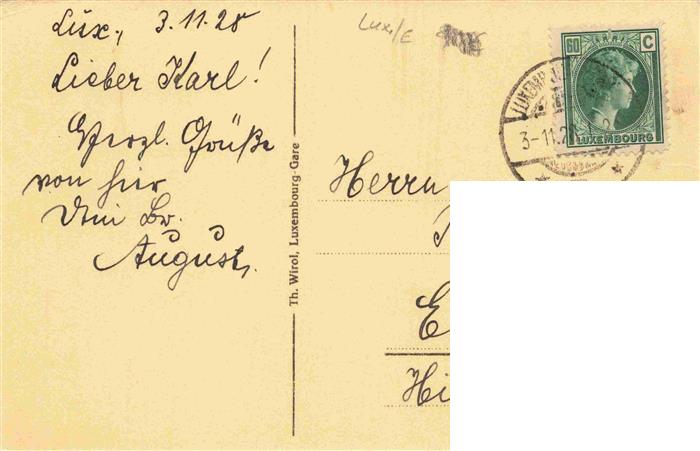 Lux., 3.11.28
Lieber Karl!
Herzl. Grüße
von hier
Dein Br.
August.
Lux/E
Th. Wirol, Luxembourg-Gare
60 C
LUXEMBOURG
3-11.2
Herrn